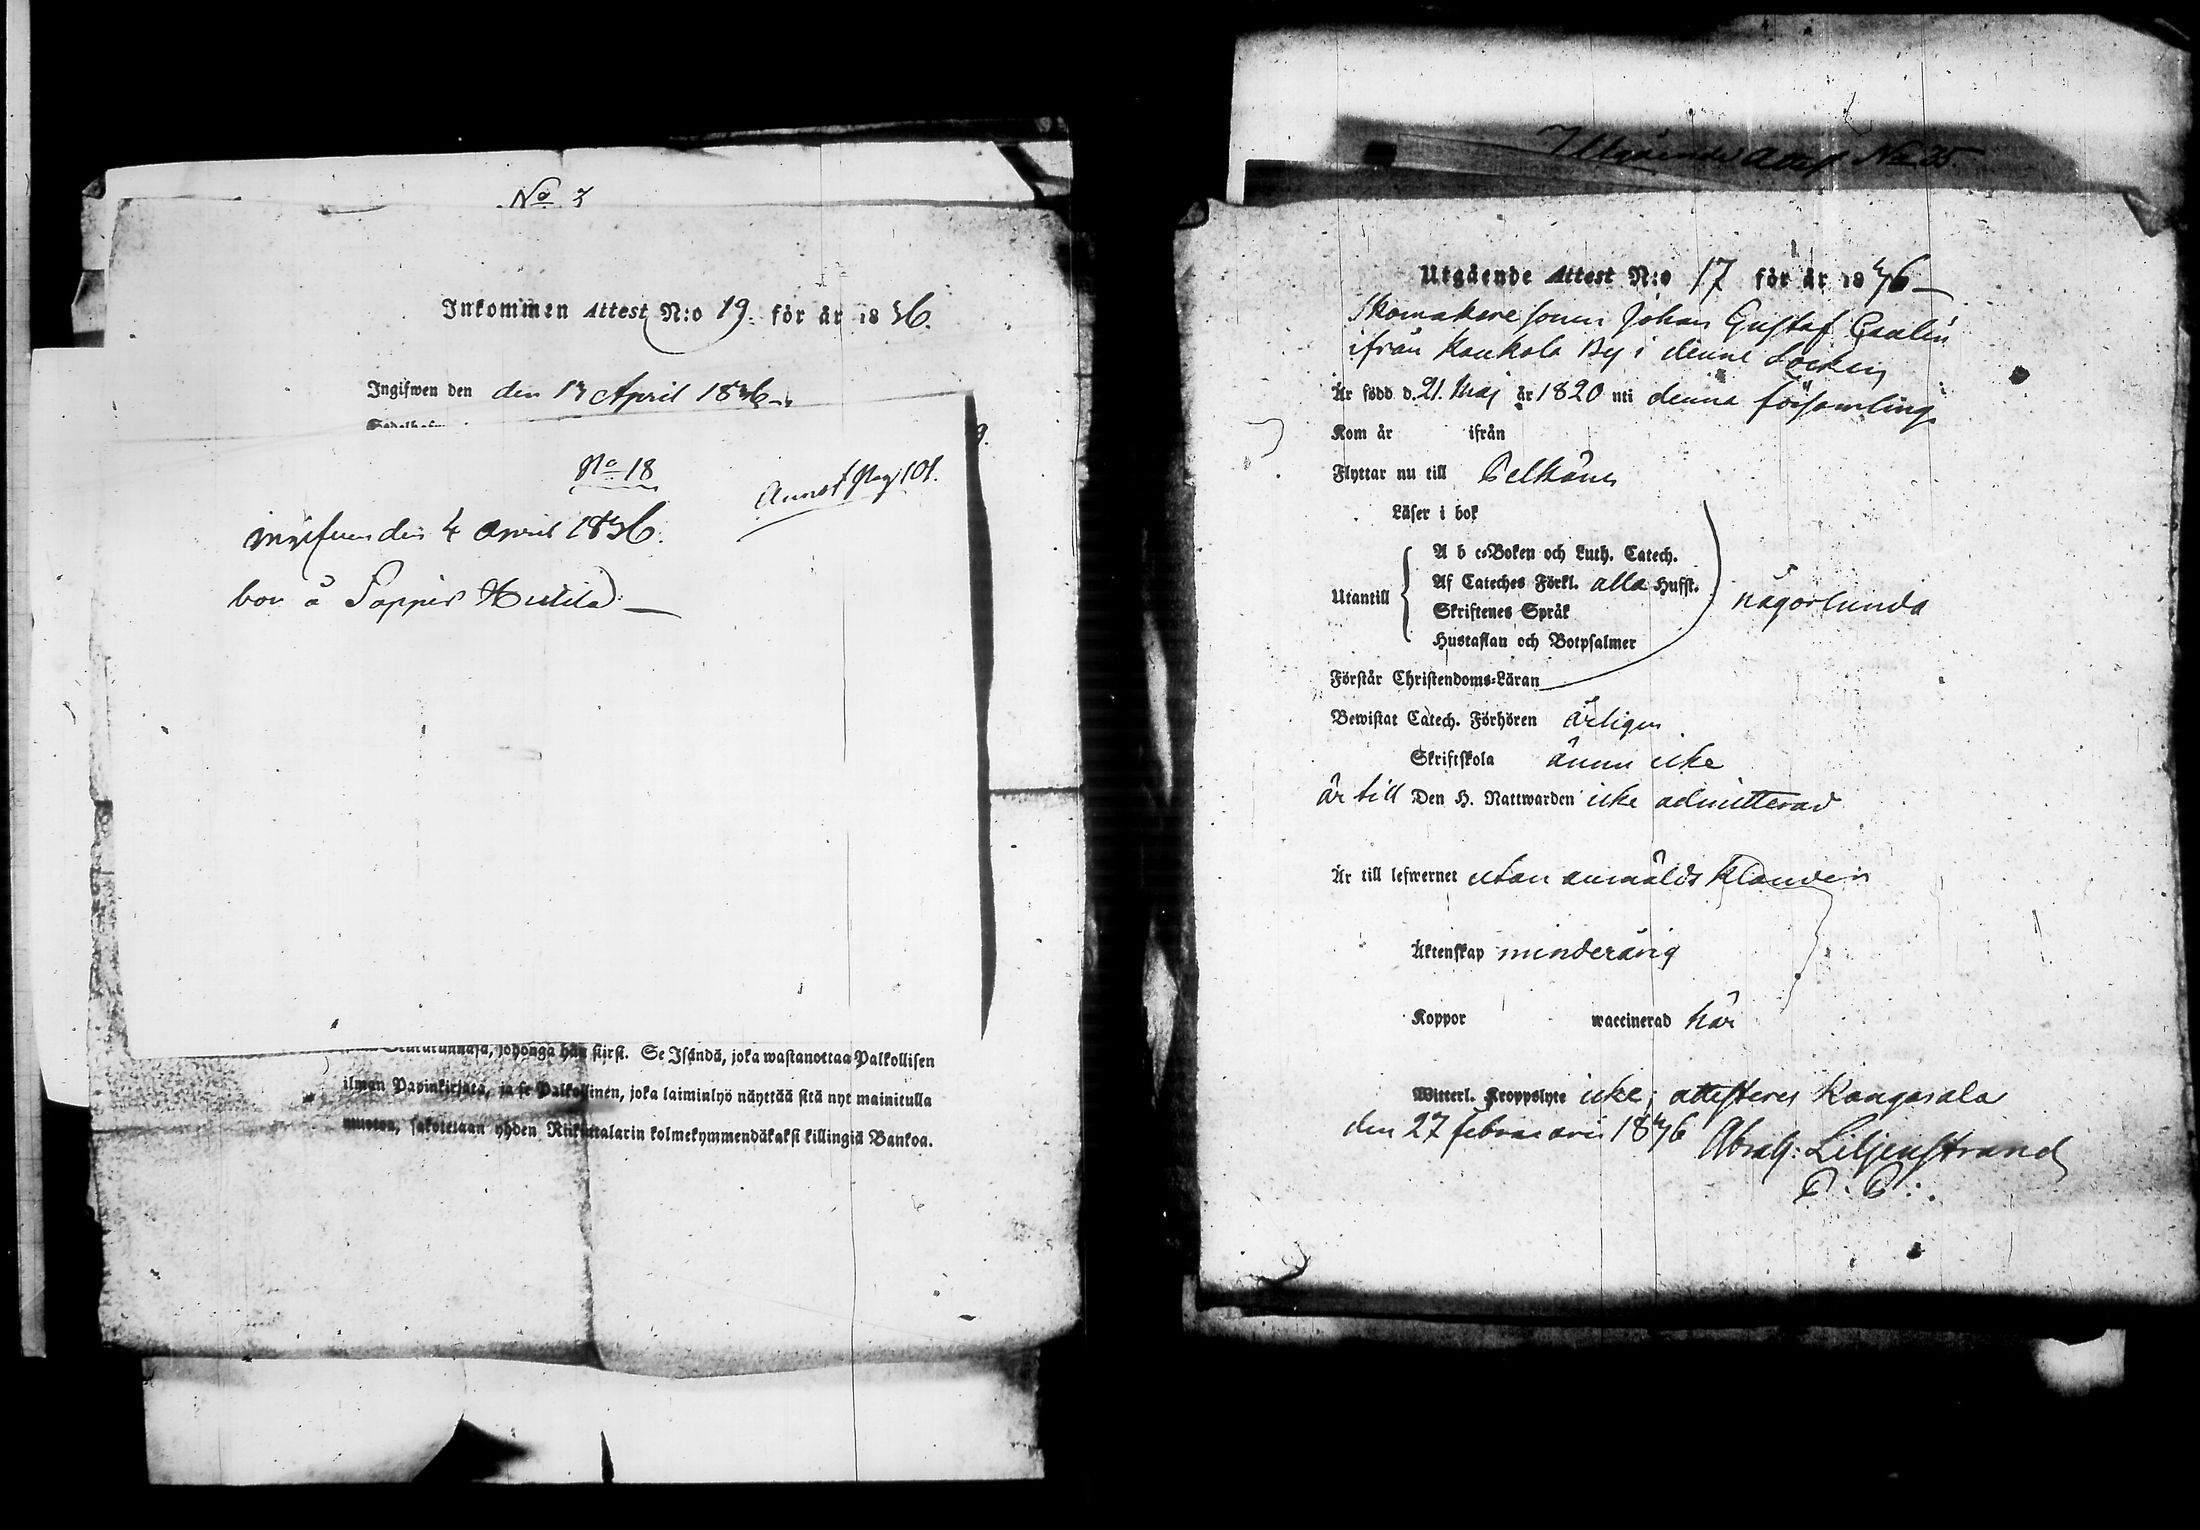 No 3
Inkommen Attest N:o 19. för år 1836.
Ingifwen den den 13 April 1836
No 18
Annot pag 101.
ingifven den 4 April 1836.
bor å
runnasa, johonga hän siirst. Se Isändä, joka wastanottaa Palkollisen
ilman Papinkirjata, ja se Palkollinen, joka laiminlyö näyttää sitä nyt mainitulla
muoton, sakotetaan yhden Riikintalarin kolmekymmendäkaksi killingiä Bankoa.
Utgående Attest No 35
Utgående Attest N:o 17 för år 1836
Skomakare sonen Johan Gustaf
ifrån Kaukola By i denne Socken
Är född d. 21. Maj år 1820 uti denna församling
Kom år ifrån
Flyttar nu till Pelkäne
Läser i bok
Utantill
A b c-Boken och Luth. Catech.
Af Cateches Förkl. alla Hufst.
Skriftenes Språk
Hustaflan och Botpsalmer
någorlunda
Förstår Christendoms-Läran
Bewistat Catech. Förhören årligen
Skriftskola ännu icke
är till Den H. Nattwarden icke admitterad
Är till lefwernet utan anmäldt klander
Äktenskap minderårig
Koppor waccinerad har
Witterl. Kroppslyte icke; attesteres Kangasala
den 27 februarii 1836 Abrah: Liljenstrand